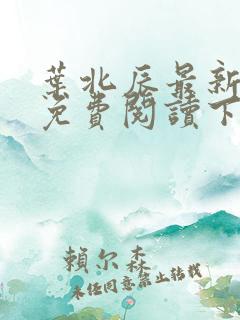 葉北辰最新
免費閱讀下
賴尔森
未经同意禁止转载